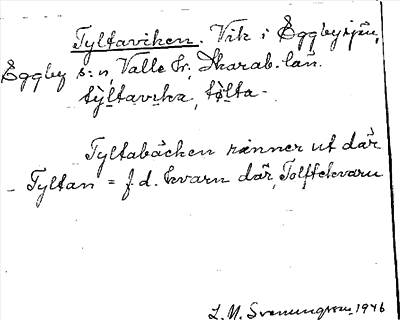 Tyltaviken. Vik i Eggbysjön,
Eggby s:n, Valle hr, Skarab. län.
týltavika, tólta -
Tyltabäcken rinner ut där
- Tyltan = f.d. kvarn där, Tolftekvarn
L. M. Svenungsson 1946